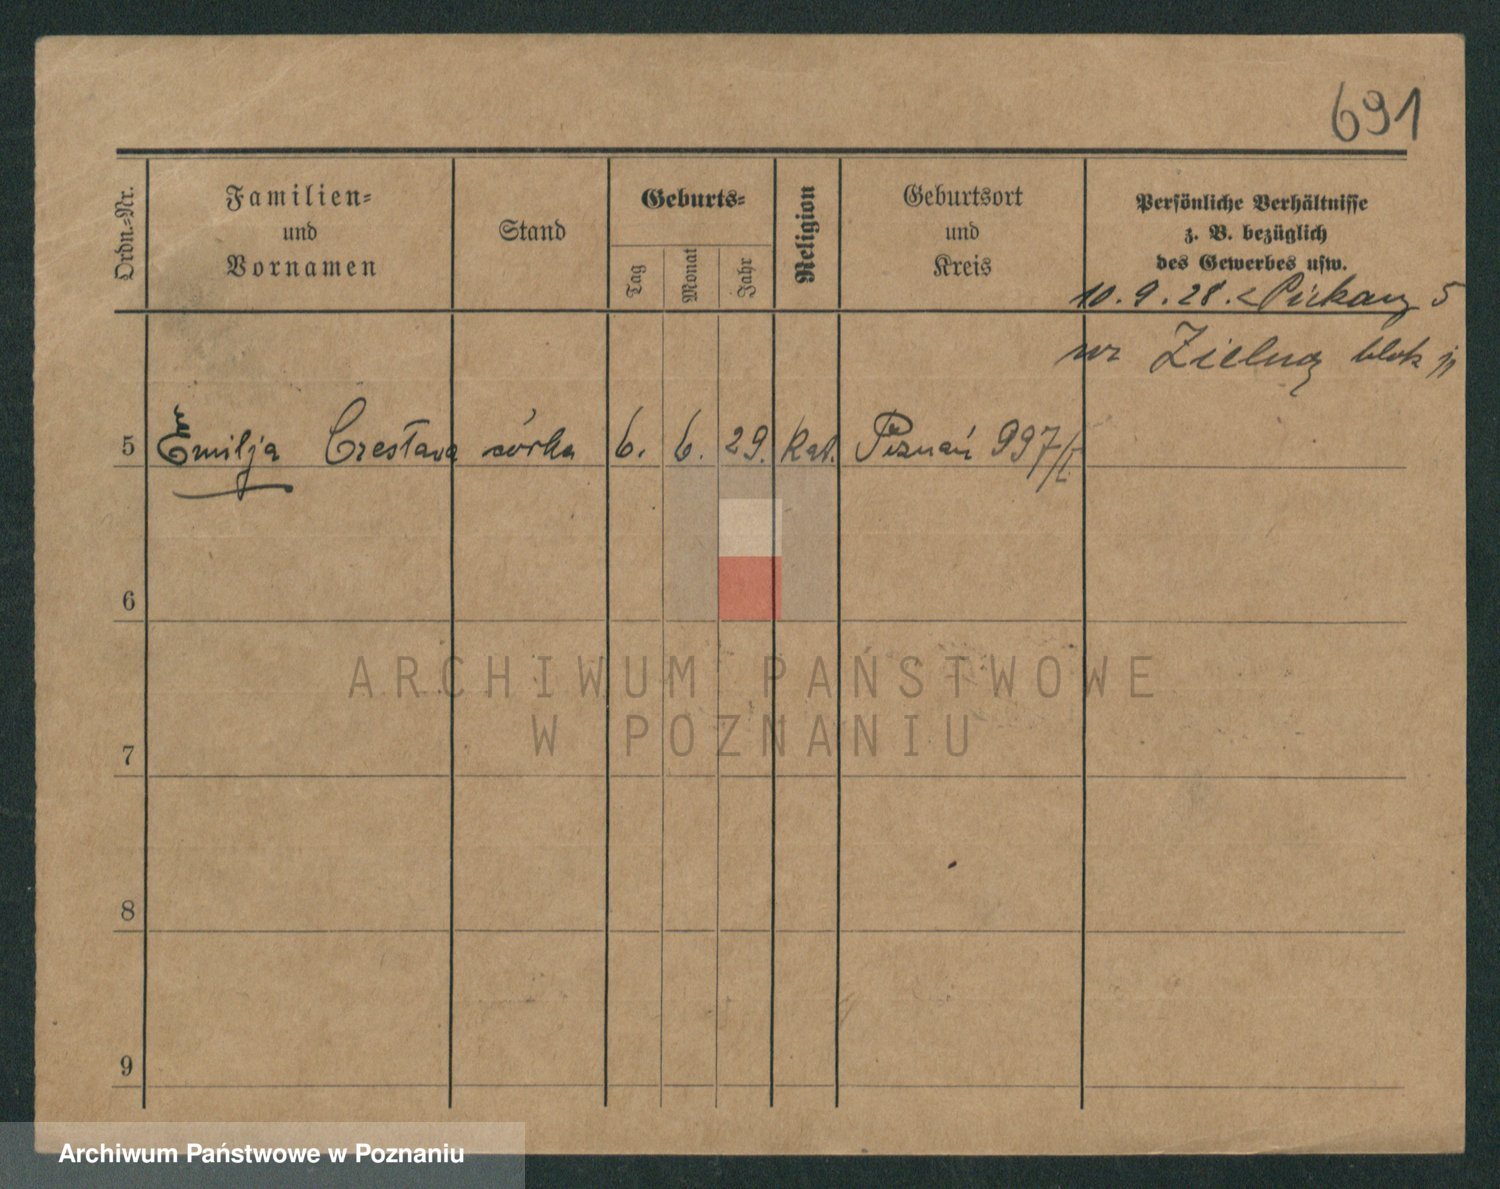 691
Ordn.-Nr.
Familien-
und
Vornamen
Stand
Geburts-
Tag
Monat
Jahr
Religion
Geburtsort
und
Kreis
Persönliche Verhältnisse
z. B. bezüglich
des Gewerbes usw.
10. 9. 28. < 5
Zielną blok
5 Emilja Czesława córka 6. 6. 29. kat. Poznań 997/I
6
7
8
9
ARCHIWUM PAŃSTWOWE
W POZNANIU
Archiwum Państwowe w Poznaniu